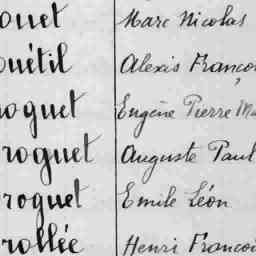 ouet Marc Nicolas
ouétil Alexis Franço
oguet Eugène Pierre Ma
roguet Auguste Paul
roguet Emile Léon
rollée Henri Françoi